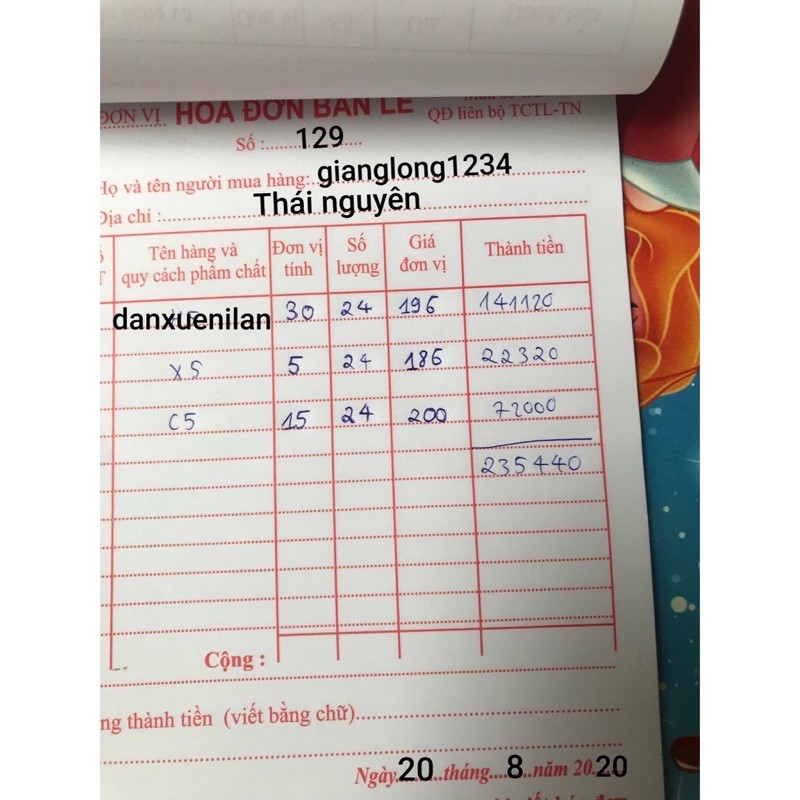 ĐƠN VỊ HÓA ĐƠN BÁN LẺ
QĐ liên bộ TCTL-TN
Số :........129....
Họ và tên người mua hàng:..gianglong1234
Địa chỉ :..............Thái nguyên
Tên hàng và quy cách phẩm chất Đơn vị tính Số lượng Giá đơn vị Thành tiền
danxuenilan 30 24 196 141120
X5 5 24 186 22320
C5 15 24 200 72000
235440
Cộng :
ng thành tiền (viết bằng chữ)
Ngày 20 tháng 8 năm 20 20